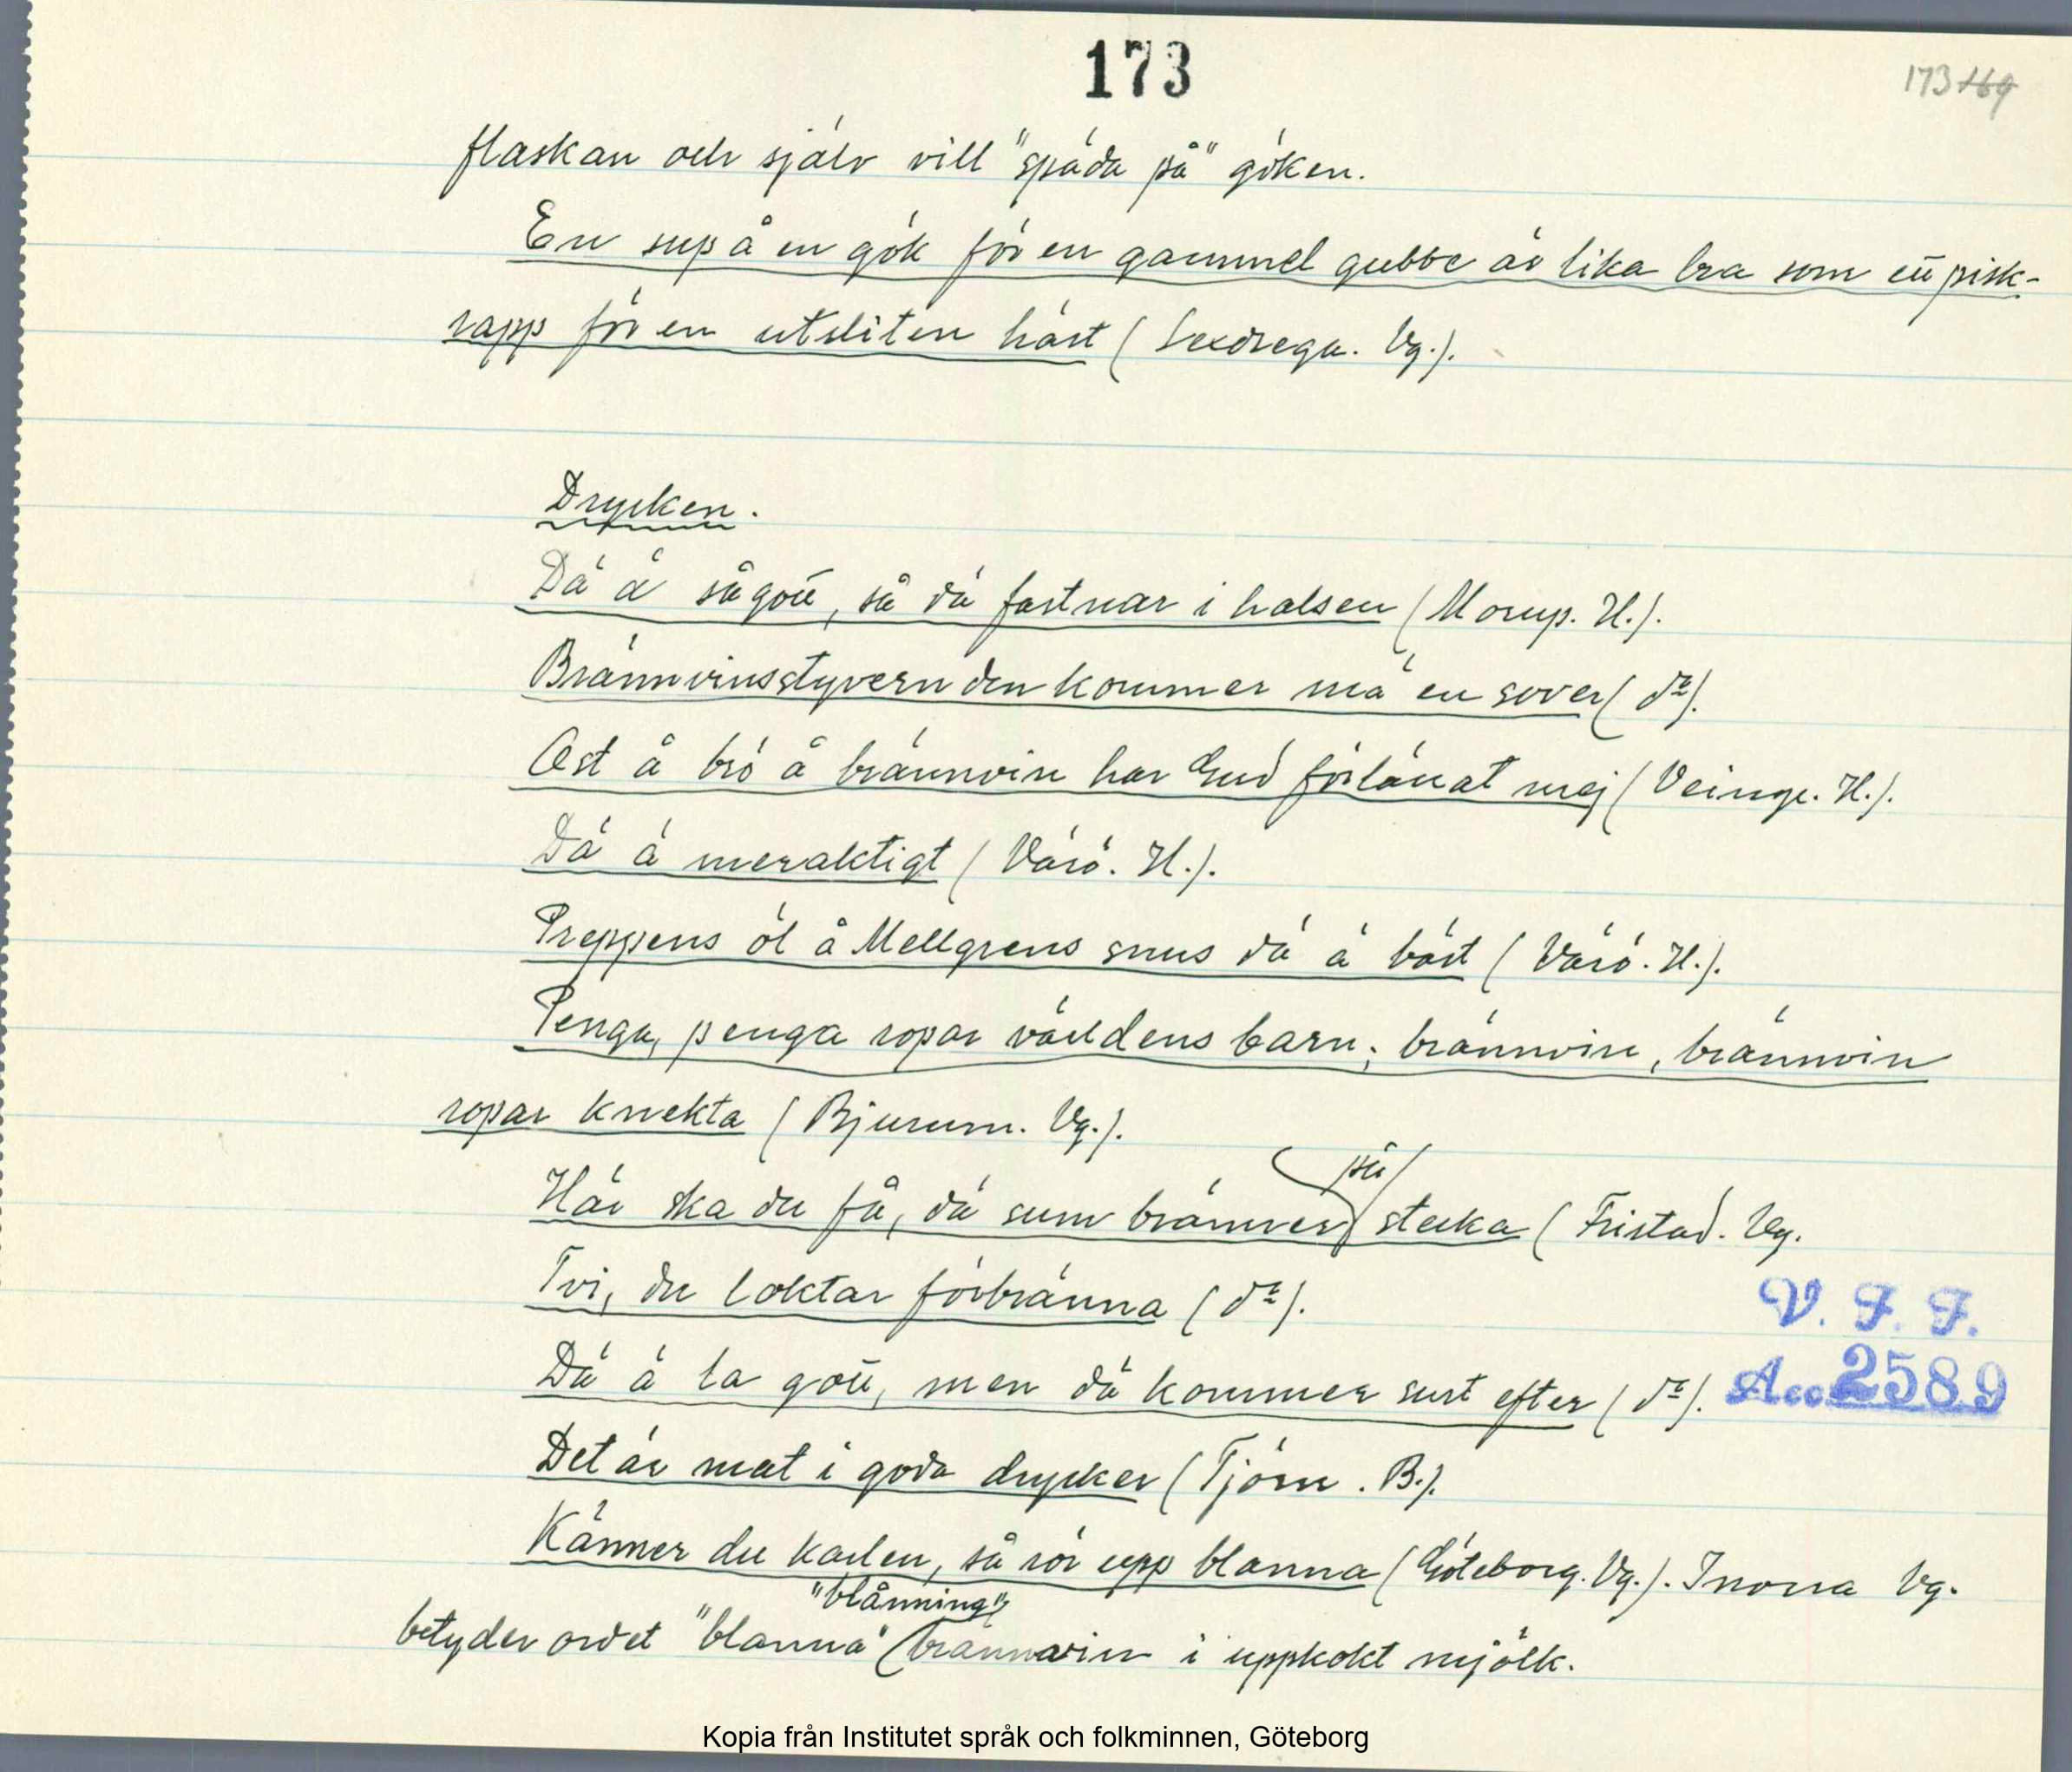 173
173 169
flaskan och själv vill "späda på" göken.
En sup å en gök för en gammel gubbe är lika bra som ett pisk-
rapp för en utsliten häst (Sexdrega. Vg.).
Drycken.
Dä ä så gott, så dä fastnar i halsen (Morup. H.).
Brännvinsstyvern den kommer mä en sover (d:o).
Ost å brö å brännvin har Gud förlänat mej (Veinge. H.).
Dä ä meraktigt (Värö. H.).
Preppens öl å Mellgrens snus dä ä bäst (Värö. H.).
Penga, penga ropar världens barn; brännvin, brännvin
ropar knekta (Bjurum. Vg.).
på
Här ska du få, dä sum bränner stecka (Fristad. Vg.
Tvi, du loktar förbränna (d:o).
V. F. F.
Dä ä la gott, men dä kommer surt efter (d:o).
Acc. 2589
Det är mat i goda drycker (Tjörn. B.).
Känner du karlen, så rör upp blanna (Göteborg. Vg.). I norra Vg.
"blånning"
betyder ordet "blanna" brännvin i uppkokt mjölk.
Kopia från Institutet språk och folkminnen, Göteborg